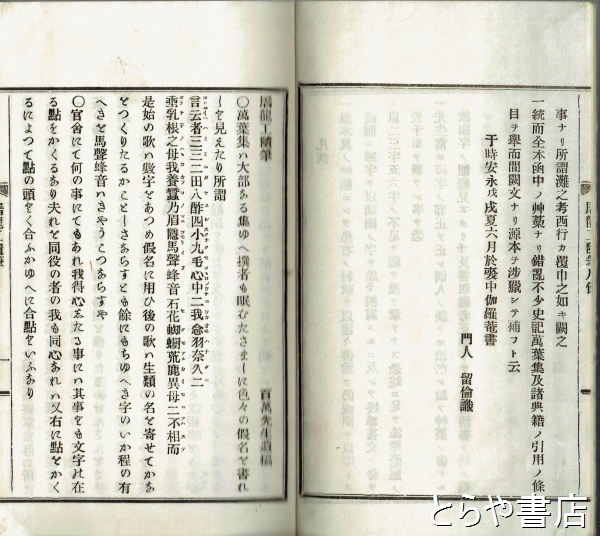 事ナリ所謂灘之考西行カ覆巾之如キ闕之
一統而全本函中ノ艸藁ナリ錯亂不少史記萬葉集及諸典籍ノ引用ノ條
目ヲ擧而間闕文ナリ源本ヲ涉獵シテ補フト云
于時安永戊戌夏六月於婺中伽羅菴書
門人 留倫識
屠龍工隨筆
百萬先生遺稿
〇萬葉集ハ大部ある集ゆへ撰者も眠むたさまーに色々の假名を書れ
しを見えたり所謂
言云者三三二田八酢四小九毛心中二我念羽奈久二
垂乳根之母我養蠶乃眉隱馬聲蜂音石花蜘蛛荒鹿異母二不相而
是始の歌ハ數字をあつめ假名に用ひ後の歌ハ生類の名を寄せてかあ
とつくりたるかことしさあらすとも餘にもちゆへき字のいか程の有
へきを馬聲蜂音ハきやうこつあらすや
〇官舍にて何の事にてもあれ我得心ゑたる事にハ其事を文字此在
る點をかくるあり夫れと同役の者の我も同心あれハ又右に點をかく
るによつて點の頭をく合ふかゆへに合點をいふあり
とらや書店